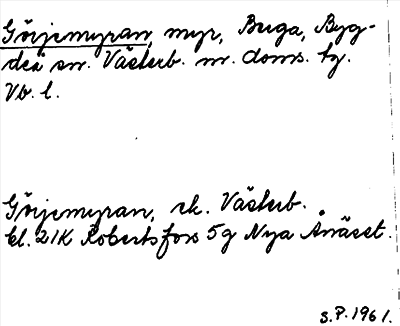 Görjemyran, myr, Buga, Byg-
deå sn. Västerb. n. doms. tg.
Vb. l.
Görjemyran, rk. Västerb.
bl. 21K Robertsfors 5g Nya Ånäset.
S.P. 1961.